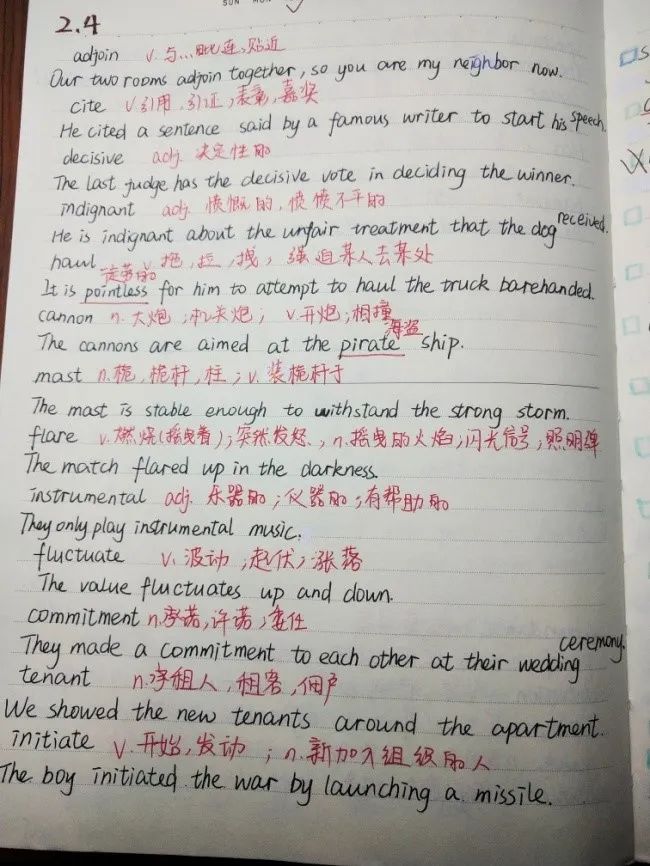 SUN MON
2.4
adjoin v. 与...毗连,贴近
Our two rooms adjoin together, so you are my neighbor now.
cite v.引用,引证;表彰,嘉奖
He cited a sentence said by a famous writer to start his speech.
decisive adj. 决定性的
The last judge has the decisive vote in deciding the winner.
indignant adj. 愤慨的,愤愤不平的
He is indignant about the unfair treatment that the dog received.
haul v. 拖,拉,拽,强迫某人去某处
徒劳的
It is pointless for him to attempt to haul the truck barehanded.
cannon n.大炮;机关炮; v.开炮;相撞
海盗
The cannons are aimed at the pirate ship.
mast n.桅,桅杆,柱; v.装桅杆于
The mast is stable enough to withstand the strong storm.
flare v.燃烧(摇曳着);突然发怒、n.摇曳的火焰;闪光信号;照明弹
The match flared up in the darkness.
instrumental adj. 乐器的;仪器的;有帮助的
They only play instrumental music.
fluctuate v. 波动,起伏;涨落
The value fluctuates up and down.
commitment n.承诺,许诺;委任
They made a commitment to each other at their wedding ceremony.
tenant n.房租人,租客,佃户
We showed the new tenants around the apartment.
initiate v.开始,发动; n.新加入组级的人
The boy initiated the war by launching a missile.